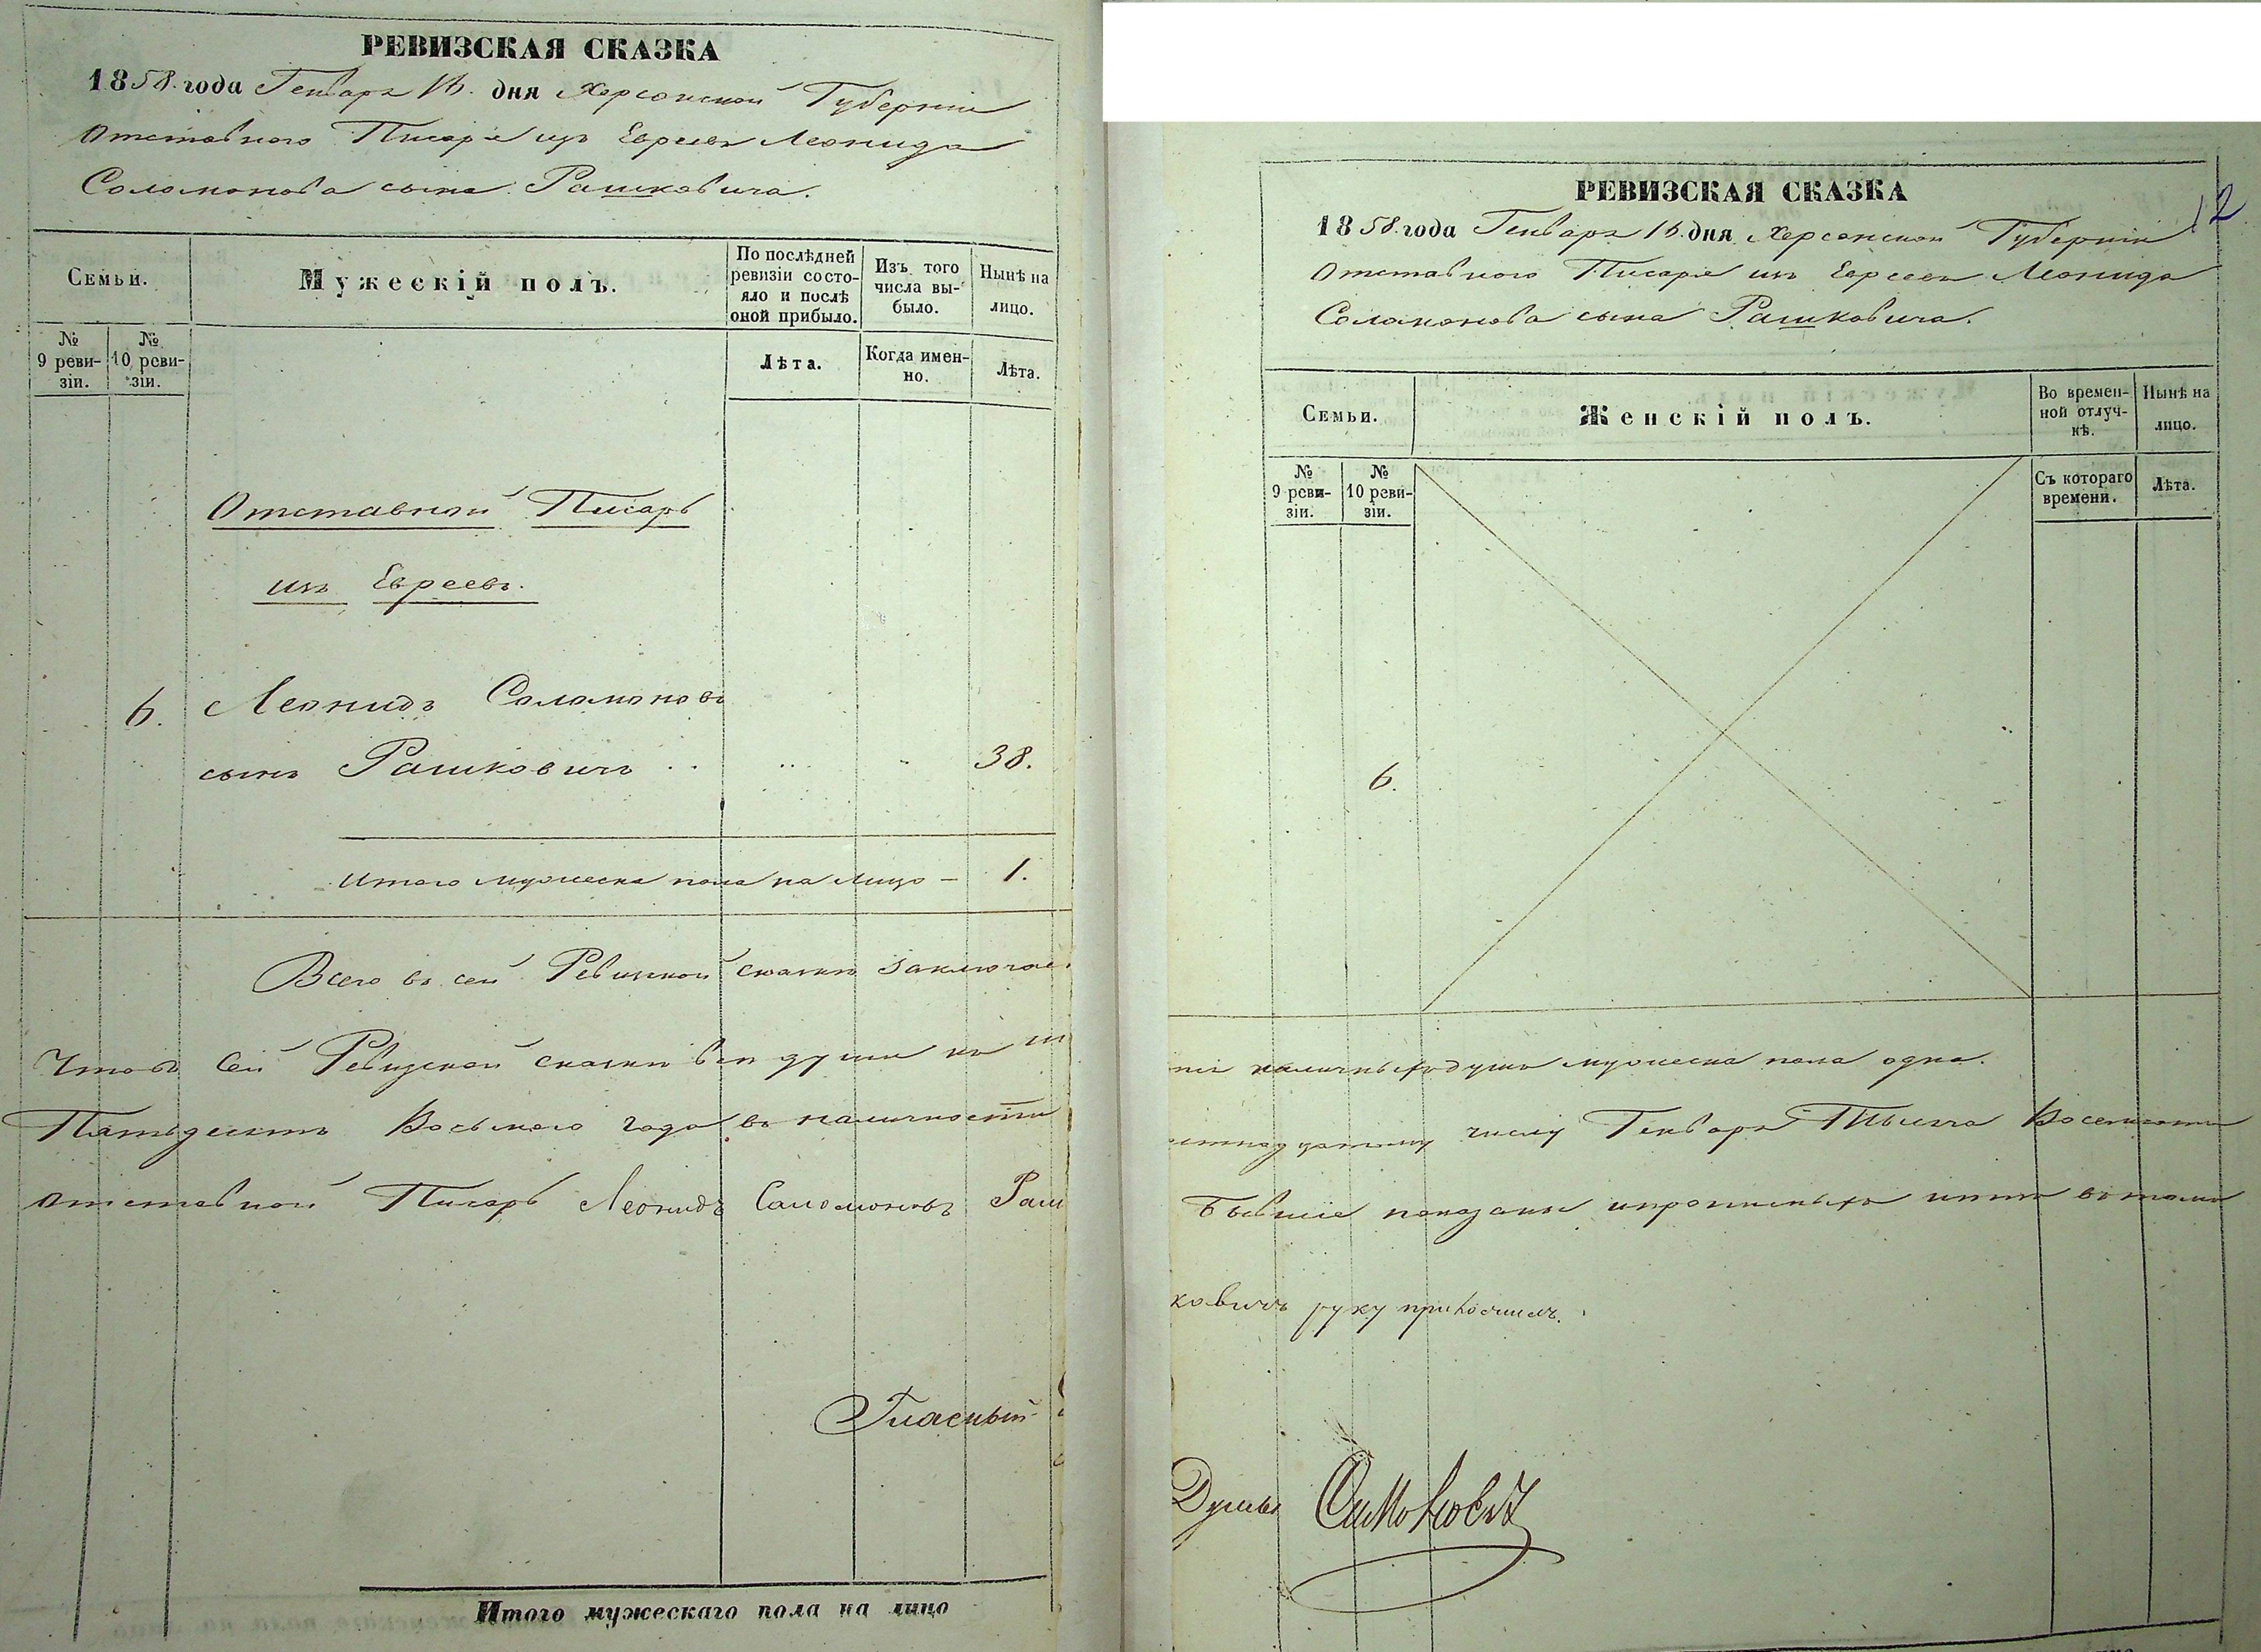 РЕВИЗСКАЯ СКАЗКА
1858. года Генваря 16. дня Херсонской Губерніи
Отставного Писаря изъ Евреевъ Леонида
Соломонова сына Рашковича.
Семьи.
Мужескій полъ.
По послѣдней
ревизіи состо-
яло и послѣ
оной прибыло.
Изъ того
числа вы-
было.
Нынѣ на
лицо.
№
9 реви-
зіи.
№
10 реви-
зіи.
Лѣта.
Когда имен-
но.
Лѣта.
Отставной Писарь
изъ Евреевъ.
6. Леонидъ Соломоновъ
сынъ Рашковичъ 38.
Итого мужеска пола на лицо - 1.
Всего въ сей Ревизской сказкѣ заключае-
Что въ Сей Ревизской сказкѣ всѣ души по ше
Пятьдесятъ Восьмого года въ наличности
Отставной Писарь Леонидъ Соломоновъ Раш
Гласный
Итого мужескаго пола на лицо
12
РЕВИЗСКАЯ СКАЗКА
1858. года Генваря 16. дня Херсонской Губерніи
Отставного Писаря изъ Евреевъ Леонида
Соломонова сына Рашковича.
Семьи.
Женскій полъ.
Во времен-
ной отлуч-
кѣ.
Нынѣ на
лицо.
№
9 реви-
зіи.
№
10 реви-
зіи.
Съ котораго
времени.
Лѣта.
6.
наличныхъ душъ мужеска пола одна.
стнадцатому числу Генваря Тысяча Восемьсотъ
Бывшіе показаны и прописныхъ нѣтъ въ томъ
ковичъ руку приложилъ.
Думы Симоновичъ